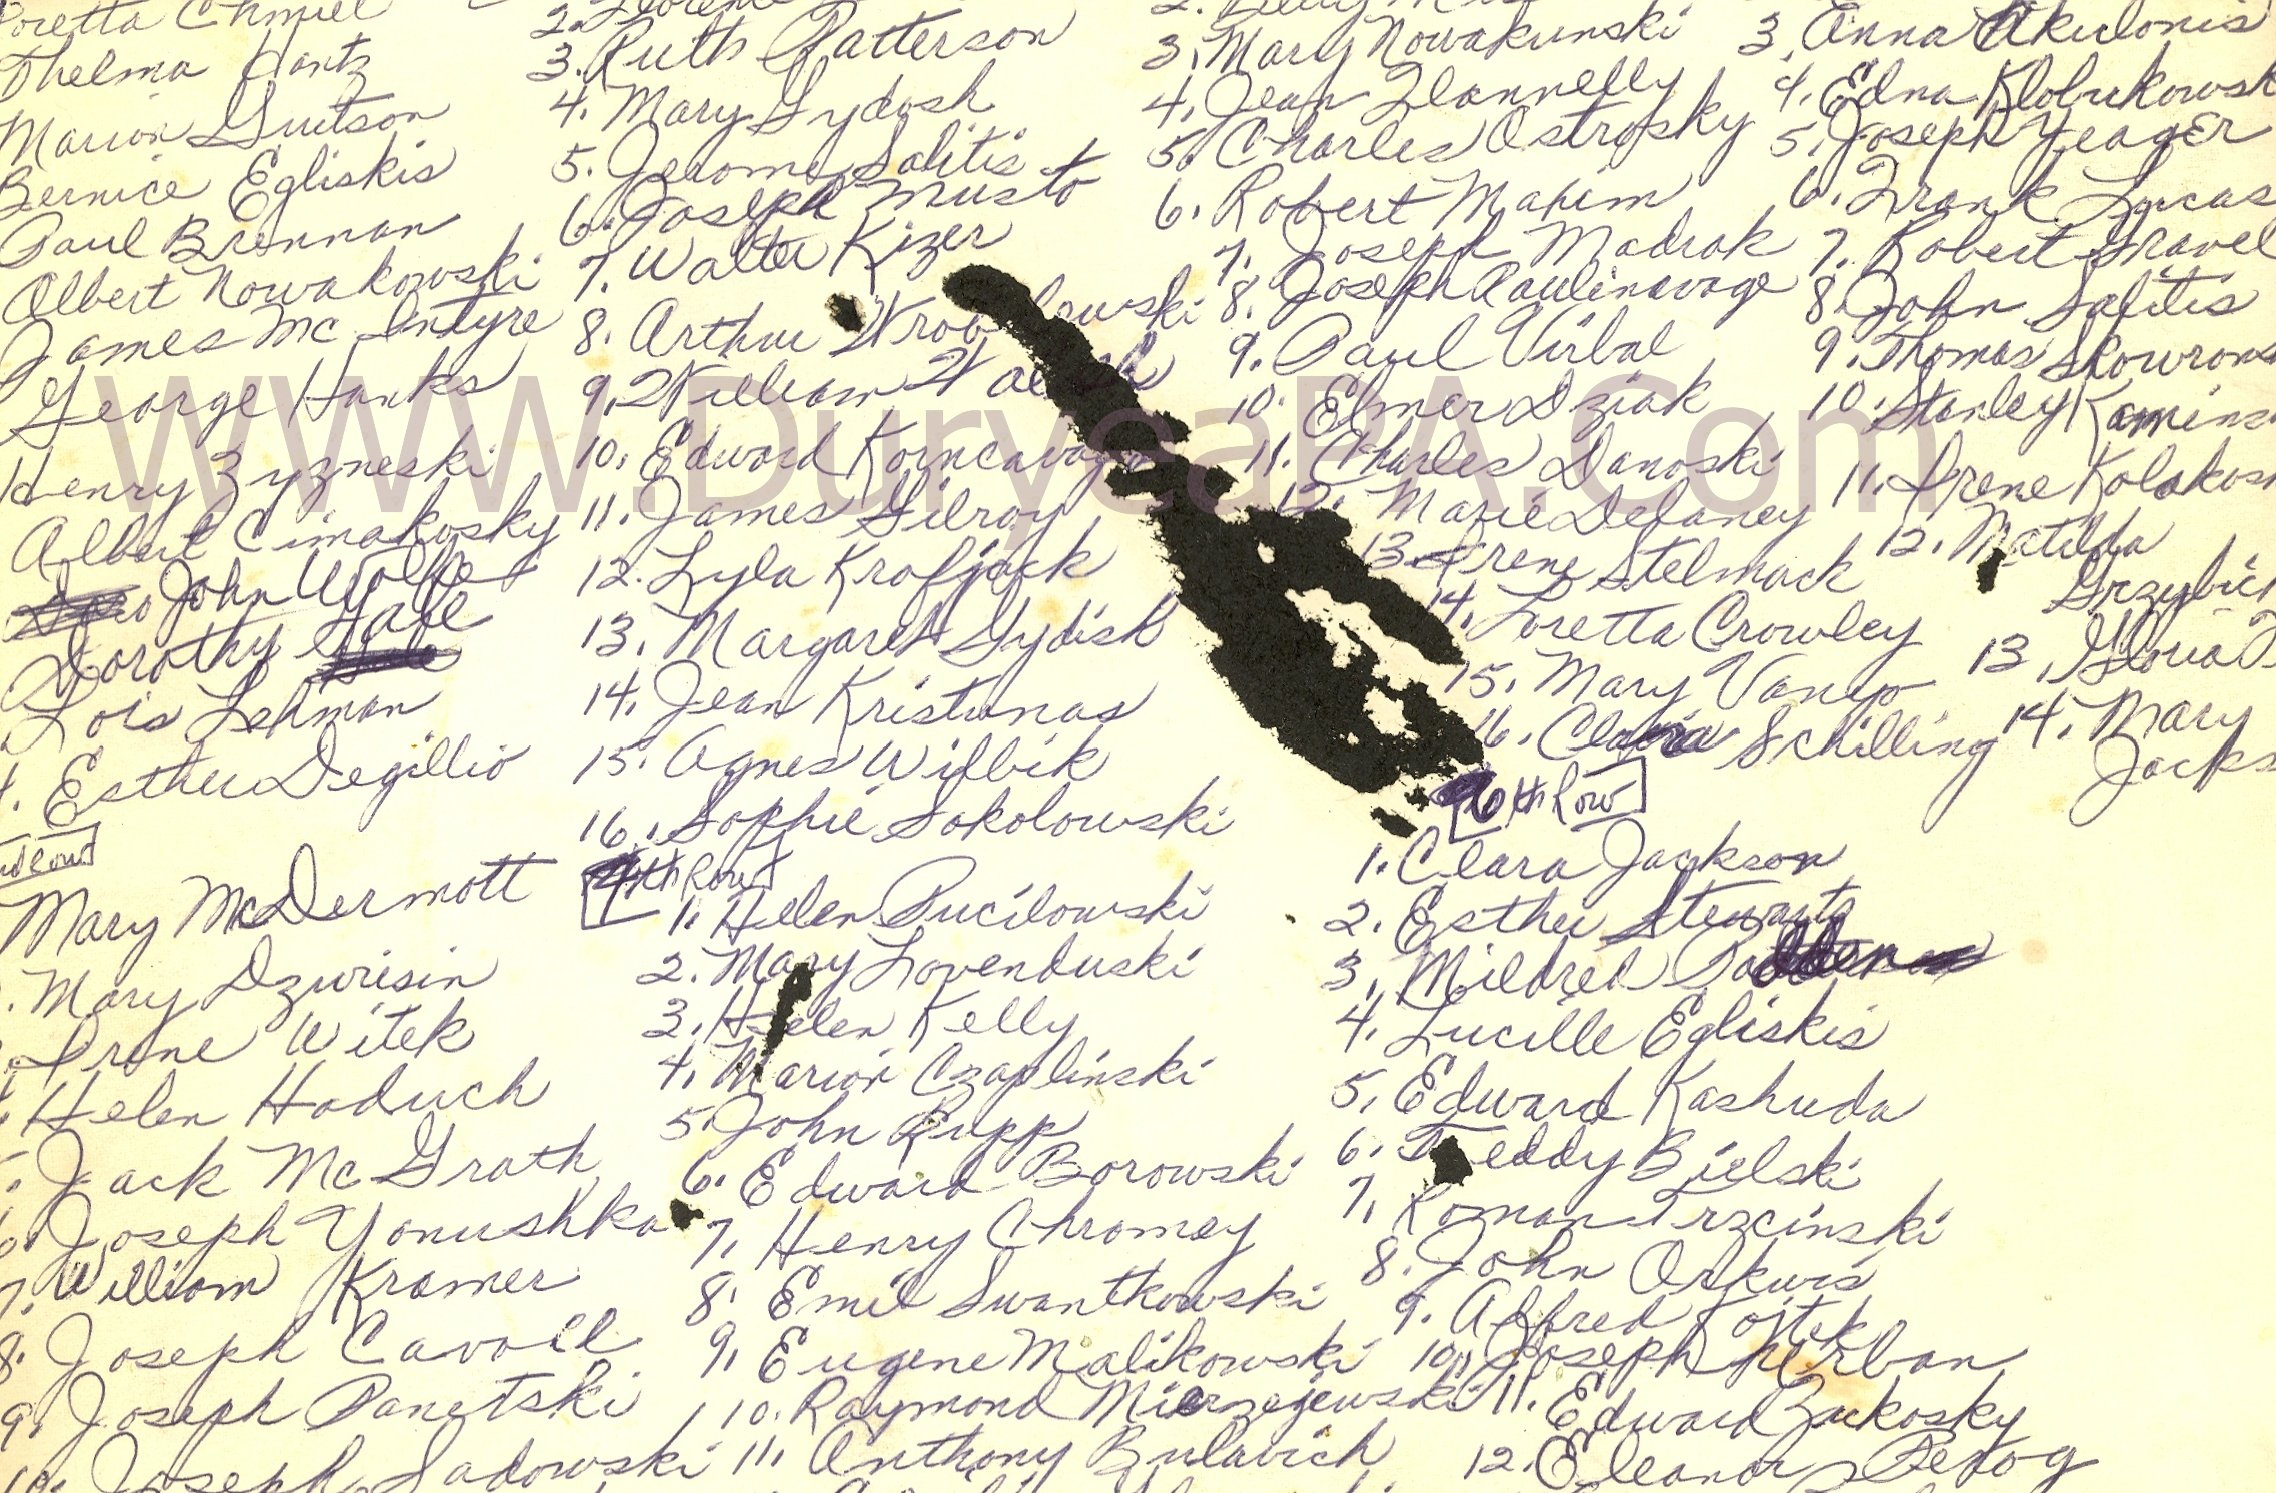 Loretta Chmiel
Thelma Hantz
Marion Guitson
Bernice Egliskis
Paul Brennan
Albert Nowakowski
James McIntyre
George Hanks
Henry Zyzneski
Albert Cimakosky
John
Dorothy Gable
Lois Lehman
Esther Degillio
Mary McDermott
Mary Dzurisin
Irene Witek
Helen Haduch
Jack McGrath
Joseph Yonushka
7. William Kramer
8. Joseph Cavall
9. Joseph Panetski
10. Joseph Sadowski
2.
3. Ruth Patterson
4. Mary Gydosh
5. Jerome Salitis
6. Joseph Musto
7. Walter Kizer
8. Arthur
9. William
10. Edward Korncavage
11. James Gilroy
12. Lyla Krofjack
13. Margaret Gydish
14. Jean Kristunas
15. Agnes Wilbik
16. Sophie Sokolowski
4th Row
1. Helen Pucilowski
2. Mary Lovenduski
3. Helen Kelly
4. Marion Czaplinski
5. John Rupp
6. Edward Borowski
7. Henry Chromey
8. Emil Swantkowski
9. Eugene Malikowski
10. Raymond Mierzejewski
11. Anthony Bulavich
2.
3. Mary Nowakunski
4. Jean Flannelly
5. Charles Ostrosky
6. Robert Maxim
7. Joseph Madrak
8. Joseph Paulinavage
9. Paul Virbal
10. Elmer Dziak
11. Charles Danoski
12. Marie Delaney
13. Irene Stelmack
14. Loretta Crowley
15. Mary Vango
16. Clara Schilling
6th Row
1. Clara Jackson
2. Esther Stewart
3. Mildred Padden
4. Lucille Egliskis
5. Edward Kashuda
6. Teddy Bielski
7. Roman Trzcinski
8. John Orkwis
9. Alfred Kojtek
10. Joseph Kerban
11. Edward Zackosky
12. Eleanor Petrog
3. Anna Akulonis
4. Edna Klobukowsk
5. Joseph Yeager
6. Frank Lucas
7. Robert Gravel
8. John Salitis
9. Thomas Skowrons
10. Stanley Kamins
11. Irene Kolakos
12. Matilda
Grzybic
13. Gloria
14. Mary
Jacks
www.DuryeaPA.Com